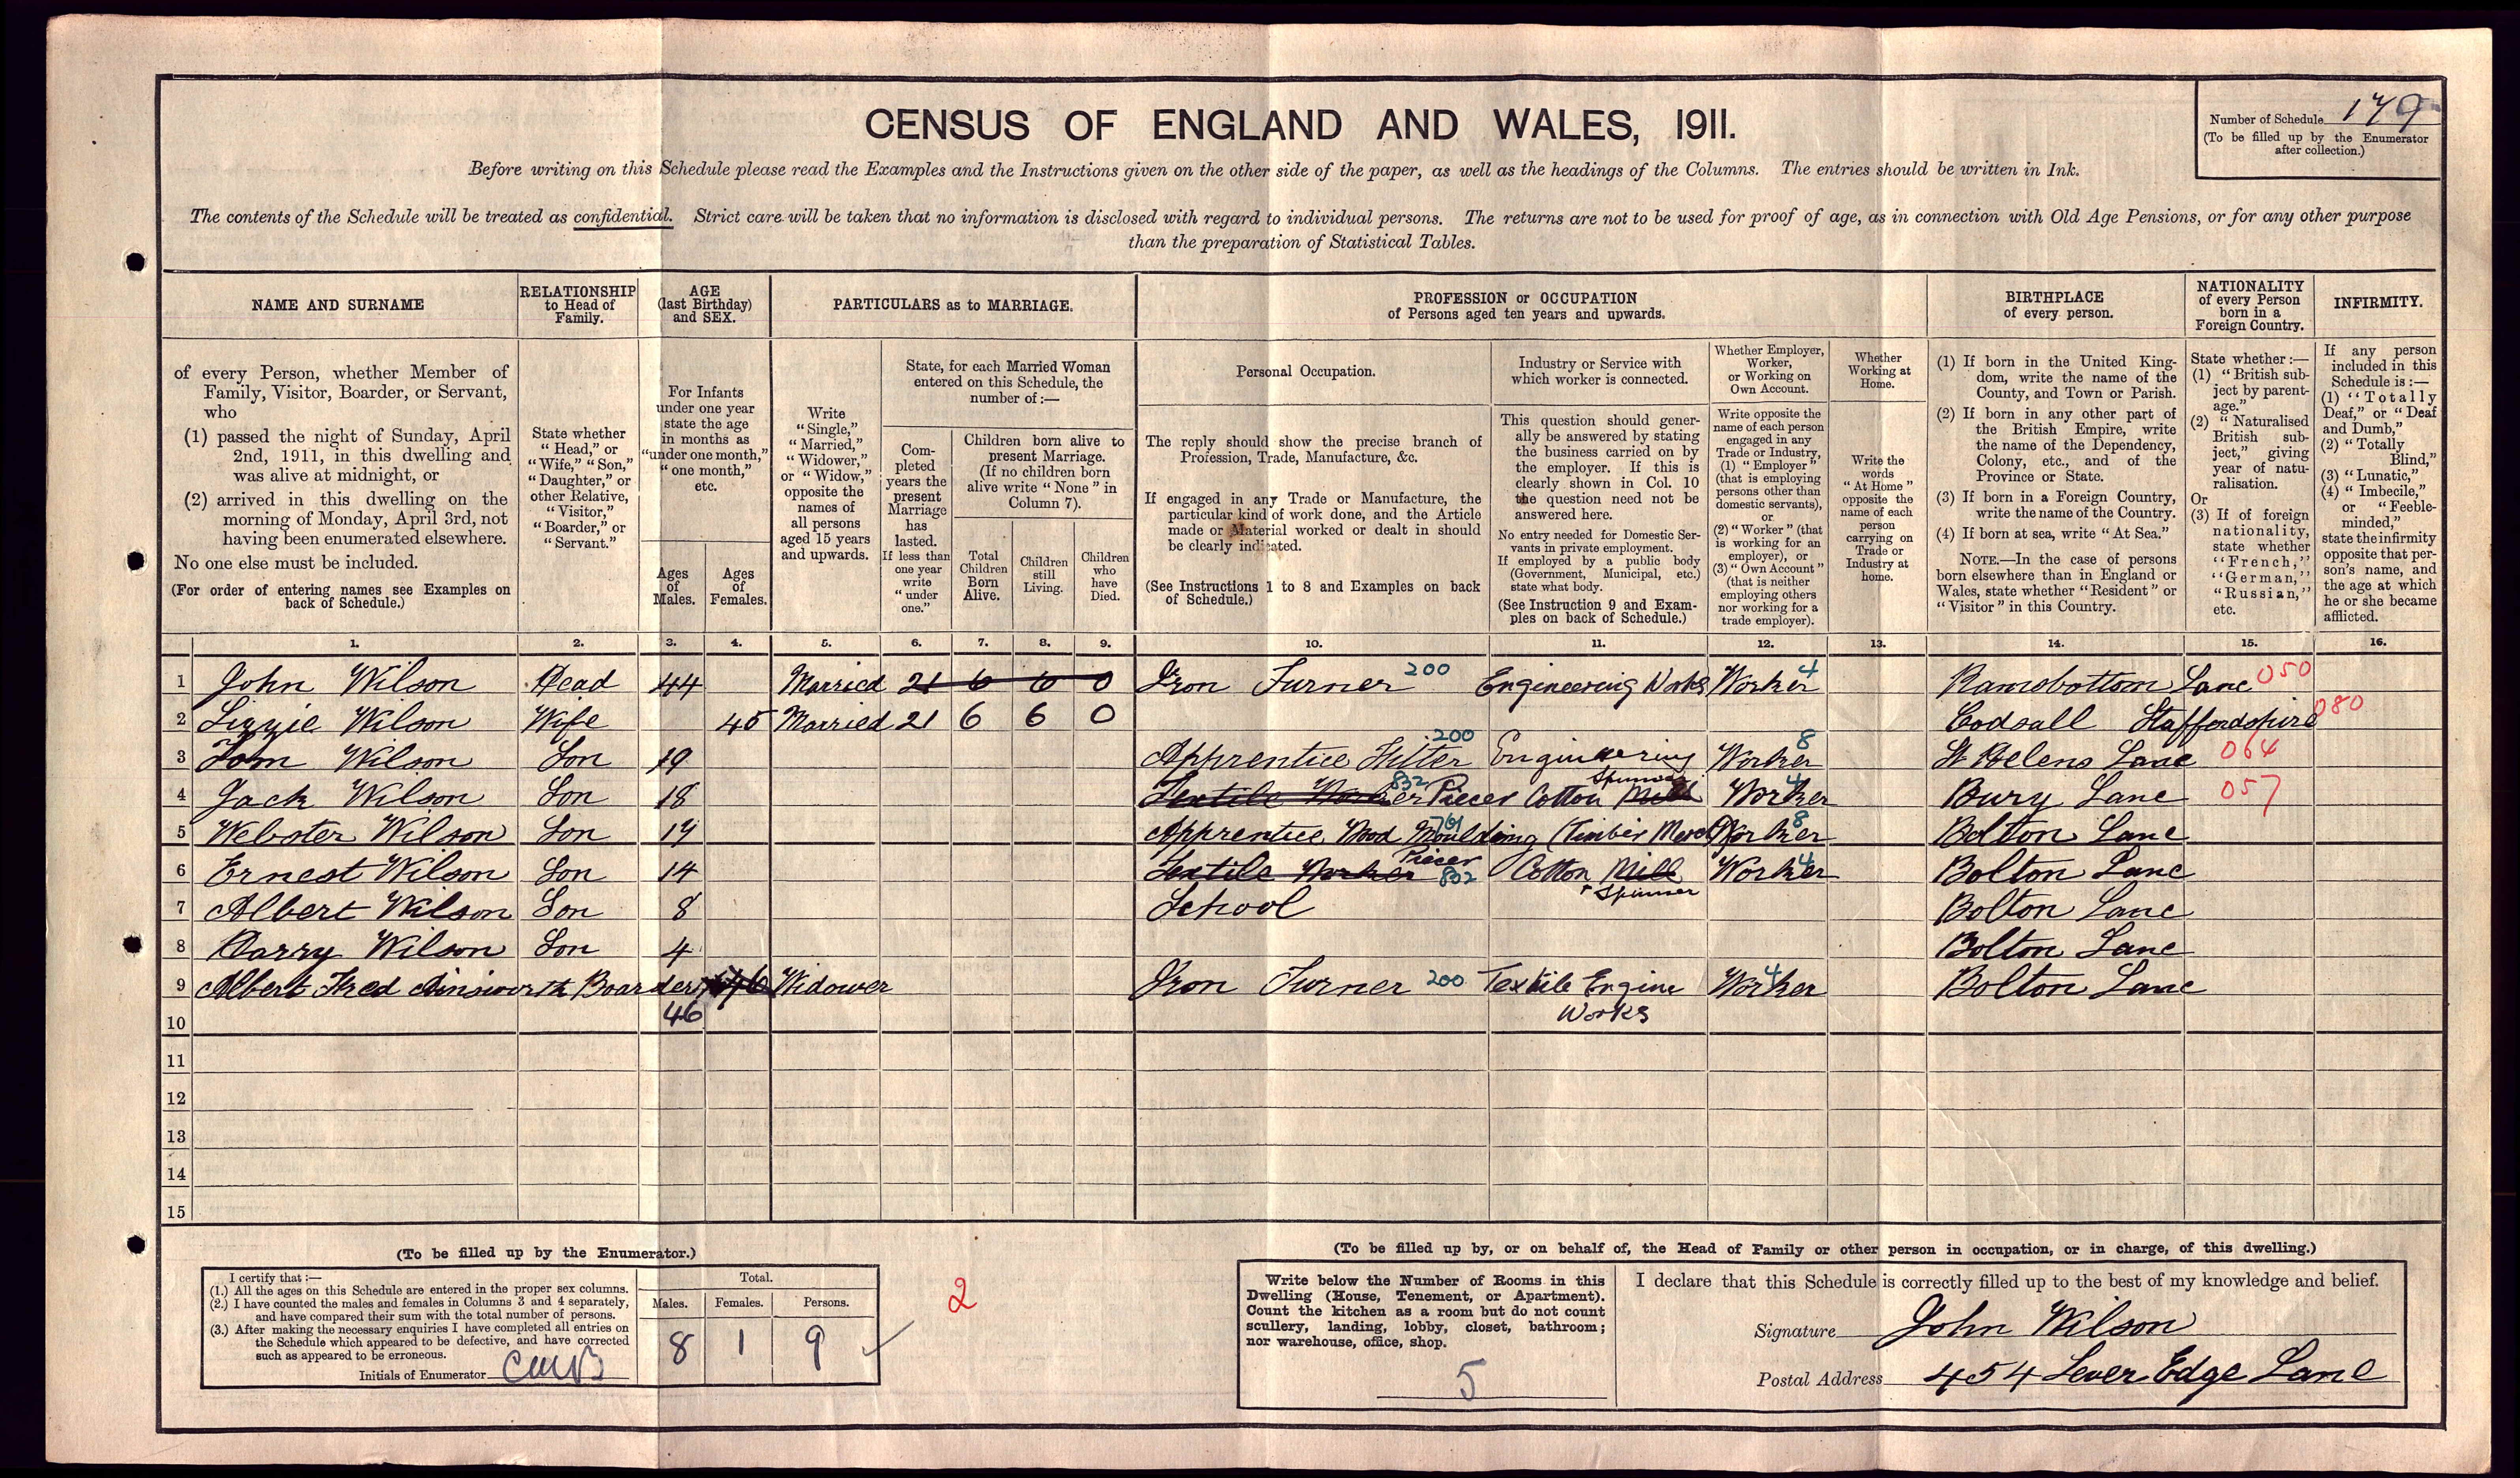 CENSUS OF ENGLAND AND WALES, 1911.
Number of Schedule 179
(To be filled up by the Enumerator
after collection.)
Before writing on this Schedule please read the Examples and the Instructions given on the other side of the paper, as well as the headings of the Columns. The entries should be written in Ink.
The contents of the Schedule will be treated as confidential. Strict care will be taken that no information is disclosed with regard to individual persons. The returns are not to be used for proof of age, as in connection with Old Age Pensions, or for any other purpose
than the preparation of Statistical Tables.
NAME AND SURNAME
of every Person, whether Member of
Family, Visitor, Boarder, or Servant,
who
(1) passed the night of Sunday, April
2nd, 1911, in this dwelling and
was alive at midnight, or
(2) arrived in this dwelling on the
morning of Monday, April 3rd, not
having been enumerated elsewhere.
No one else must be included.
(For order of entering names see Examples on
back of Schedule.)
RELATIONSHIP
to Head of
Family.
State whether
"Head," or
"Wife," "Son,"
"Daughter," or
other Relative,
"Visitor,"
"Boarder," or
"Servant."
AGE
(last Birthday)
and SEX.
For Infants
under one year
state the age
in months as
"under one month,"
"one month,"
etc.
Ages
of
Males.
Ages
of
Females.
PARTICULARS as to MARRIAGE.
Write
"Single,"
"Married,"
"Widower,"
or "Widow,"
opposite the
names of
all persons
aged 15 years
and upwards.
State, for each Married Woman
entered on this Schedule, the
number of:—
Com-
pleted
years the
present
Marriage
has
lasted.
If less than
one year
write
"under
one."
Children born alive to
present Marriage.
(If no children born
alive write "None" in
Column 7).
Total
Children
Born
Alive.
Children
still
Living.
Children
who
have
Died.
PROFESSION or OCCUPATION
of Persons aged ten years and upwards.
Personal Occupation.
The reply should show the precise branch of
Profession, Trade, Manufacture, &c.
If engaged in any Trade or Manufacture, the
particular kind of work done, and the Article
made or Material worked or dealt in should
be clearly indicated.
(See Instructions 1 to 8 and Examples on back
of Schedule.)
Industry or Service with
which worker is connected.
This question should gener-
ally be answered by stating
the business carried on by
the employer. If this is
clearly shown in Col. 10
the question need not be
answered here.
No entry needed for Domestic Ser-
vants in private employment.
If employed by a public body
(Government, Municipal, etc.)
state what body.
(See Instruction 9 and Exam-
ples on back of Schedule.)
Whether Employer,
Worker,
or Working on
Own Account.
Write opposite the
name of each person
engaged in any
Trade or Industry,
(1) "Employer"
(that is employing
persons other than
domestic servants),
or
(2) "Worker" (that
is working for an
employer), or
(3) "Own Account"
(that is neither
employing others
nor working for a
trade employer).
Whether
Working at
Home.
Write the
words
"At Home"
opposite the
name of each
person
carrying on
Trade or
Industry at
home.
BIRTHPLACE
of every person.
(1) If born in the United King-
dom, write the name of the
County, and Town or Parish.
(2) If born in any other part of
the British Empire, write
the name of the Dependency,
Colony, etc., and of the
Province or State.
(3) If born in a Foreign Country,
write the name of the Country.
(4) If born at sea, write "At Sea."
NOTE.—In the case of persons
born elsewhere than in England or
Wales, state whether "Resident" or
"Visitor" in this Country.
NATIONALITY
of every Person
born in a
Foreign Country.
State whether:—
(1) "British sub-
ject by parent-
age."
(2) "Naturalised
British sub-
ject," giving
year of natu-
ralisation.
Or
(3) If of foreign
nationality,
state whether
"French,"
"German,"
"Russian,"
etc.
INFIRMITY.
If any person
included in this
Schedule is:—
(1) "Totally
Deaf," or "Deaf
and Dumb,"
(2) "Totally
Blind,"
(3) "Lunatic,"
(4) "Imbecile,"
or "Feeble-
minded,"
state the infirmity
opposite that per-
son's name, and
the age at which
he or she became
afflicted.
1. 2. 3. 4. 5. 6. 7. 8. 9. 10. 11. 12. 13. 14. 15. 16.
1 John Wilson Head 44 Married 21 6 6 0 Iron Turner 200 Engineering Works Worker 4 Ramsbottom Lanc 050
2 Lizzie Wilson Wife 45 Married 21 6 6 0 Codsall Staffordshire 080
3 Tom Wilson Son 19 Apprentice Fitter 200 Engineering Worker 8 St Helens Lanc 064
4 Jack Wilson Son 18 Textile Worker 832 Piecer Cotton Mill Spinner Worker 4 Bury Lanc 057
5 Webster Wilson Son 17 Apprentice Wood Moulding 761 (Timber Merct) Worker 8 Bolton Lanc
6 Ernest Wilson Son 14 Textile Worker Piecer 832 Cotton Mill Spinner Worker 4 Bolton Lanc
7 Albert Wilson Son 8 School Bolton Lanc
8 Harry Wilson Son 4 Bolton Lanc
9 Albert Fred Ainsworth Boarder 46 Widower Iron Turner 200 Textile Engine Worker 4 Bolton Lanc
10 46 Works
11
12
13
14
15
(To be filled up by the Enumerator.)
I certify that:—
(1.) All the ages on this Schedule are entered in the proper sex columns.
(2.) I have counted the males and females in Columns 3 and 4 separately,
and have compared their sum with the total number of persons.
(3.) After making the necessary enquiries I have completed all entries on
the Schedule which appeared to be defective, and have corrected
such as appeared to be erroneous.
Initials of Enumerator
Total.
Males. Females. Persons.
8 1 9
2
(To be filled up by, or on behalf of, the Head of Family or other person in occupation, or in charge, of this dwelling.)
Write below the Number of Rooms in this
Dwelling (House, Tenement, or Apartment).
Count the kitchen as a room but do not count
scullery, landing, lobby, closet, bathroom;
nor warehouse, office, shop.
5
I declare that this Schedule is correctly filled up to the best of my knowledge and belief.
Signature John Wilson
Postal Address 454 Lever Edge Lane